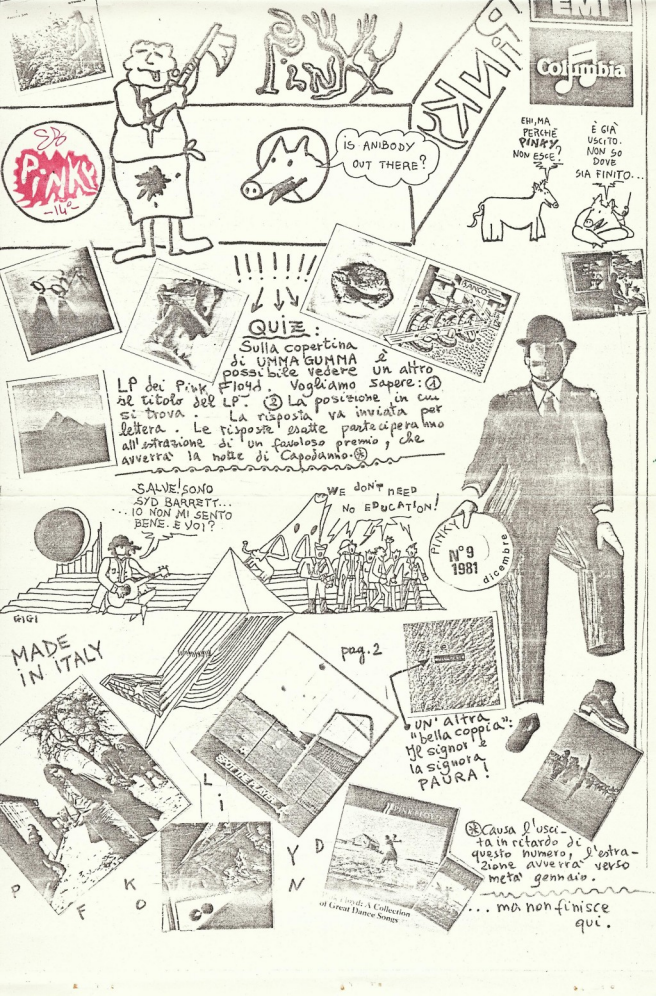 PiNKY
PiNKY
EMI
Columbia
PiNKY
-14°-
iS ANIBODY
OUT THERE?
EHI, MA
PERCHÈ
PINKY
NON ESCE?
È GIÀ
USCITO.
NON SO
DOVE
SIA FINITO...
BANCO
!!!!!!!
QUIZ:
Sulla copertina
di UMMA GUMMA è
possibile vedere un altro
LP dei Pink Floyd. Vogliamo sapere: ①
il titolo del LP. ② La posizione in cui
si trova. La risposta va inviata per
lettera. Le risposte esatte parteciperanno
all'estrazione di un favoloso premio, che
avverrà la notte di Capodanno. ⊛
SALVE! SONO
SYD BARRETT...
...IO NON MI SENTO
BENE. E VOI?
WE DON'T NEED
NO EDUCATION!
PINKY
N°9
1981
dicembre
GIGI
MADE
IN ITALY
pag.2
UN'altra
"bella coppia":
il signor e
la signora
PAURA!
L
i
P
F
K
O
Y
D
N
PINK FLOYD
Floyd: A Collection
of Great Dance Songs
⊛ Causa l'usci-
ta in ritardo di
questo numero, l'estra-
zione avverrà verso
metà gennaio.
... ma non finisce
qui.